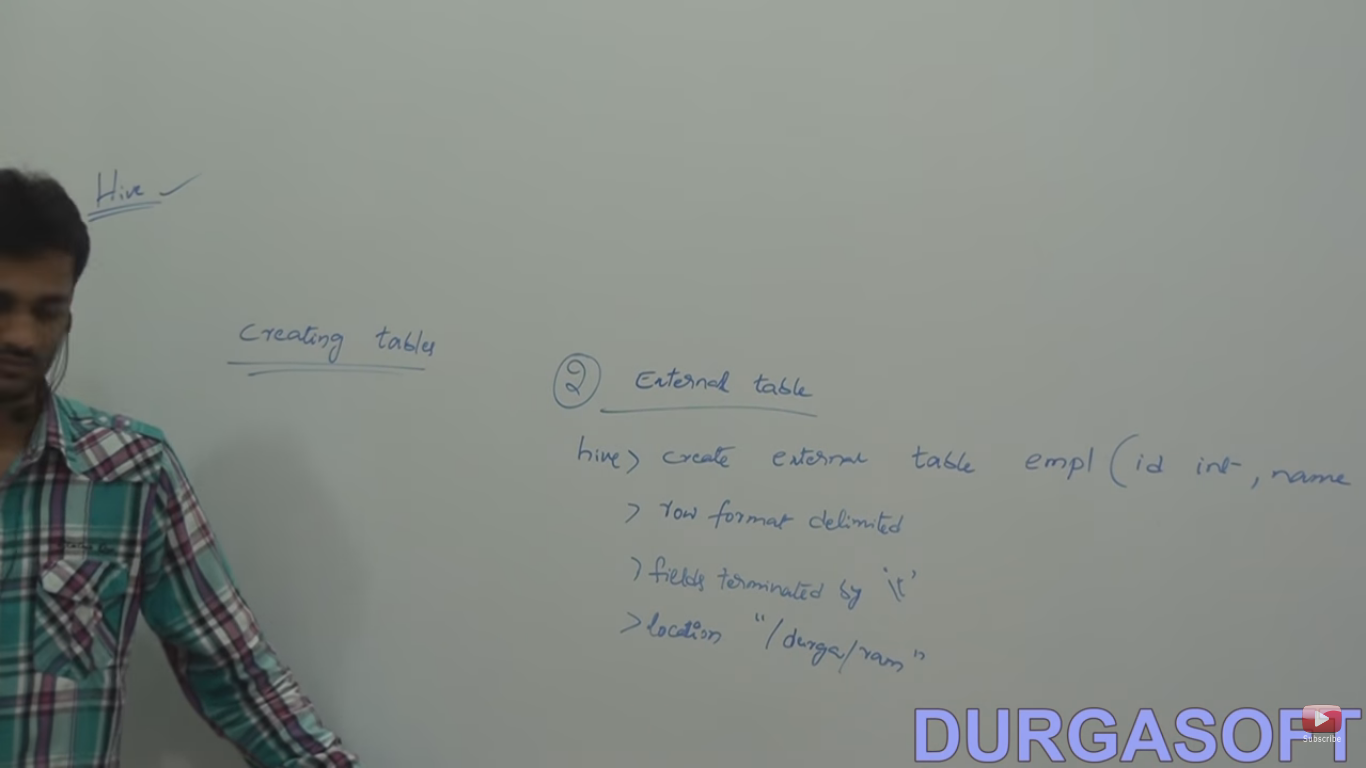 Hive
Creating tables
2 External table
hive> create external table empl (id int, name
> row format delimited
> fields terminated by '\t'
> location "/durga/ram"
DURGASOFT
Subscribe